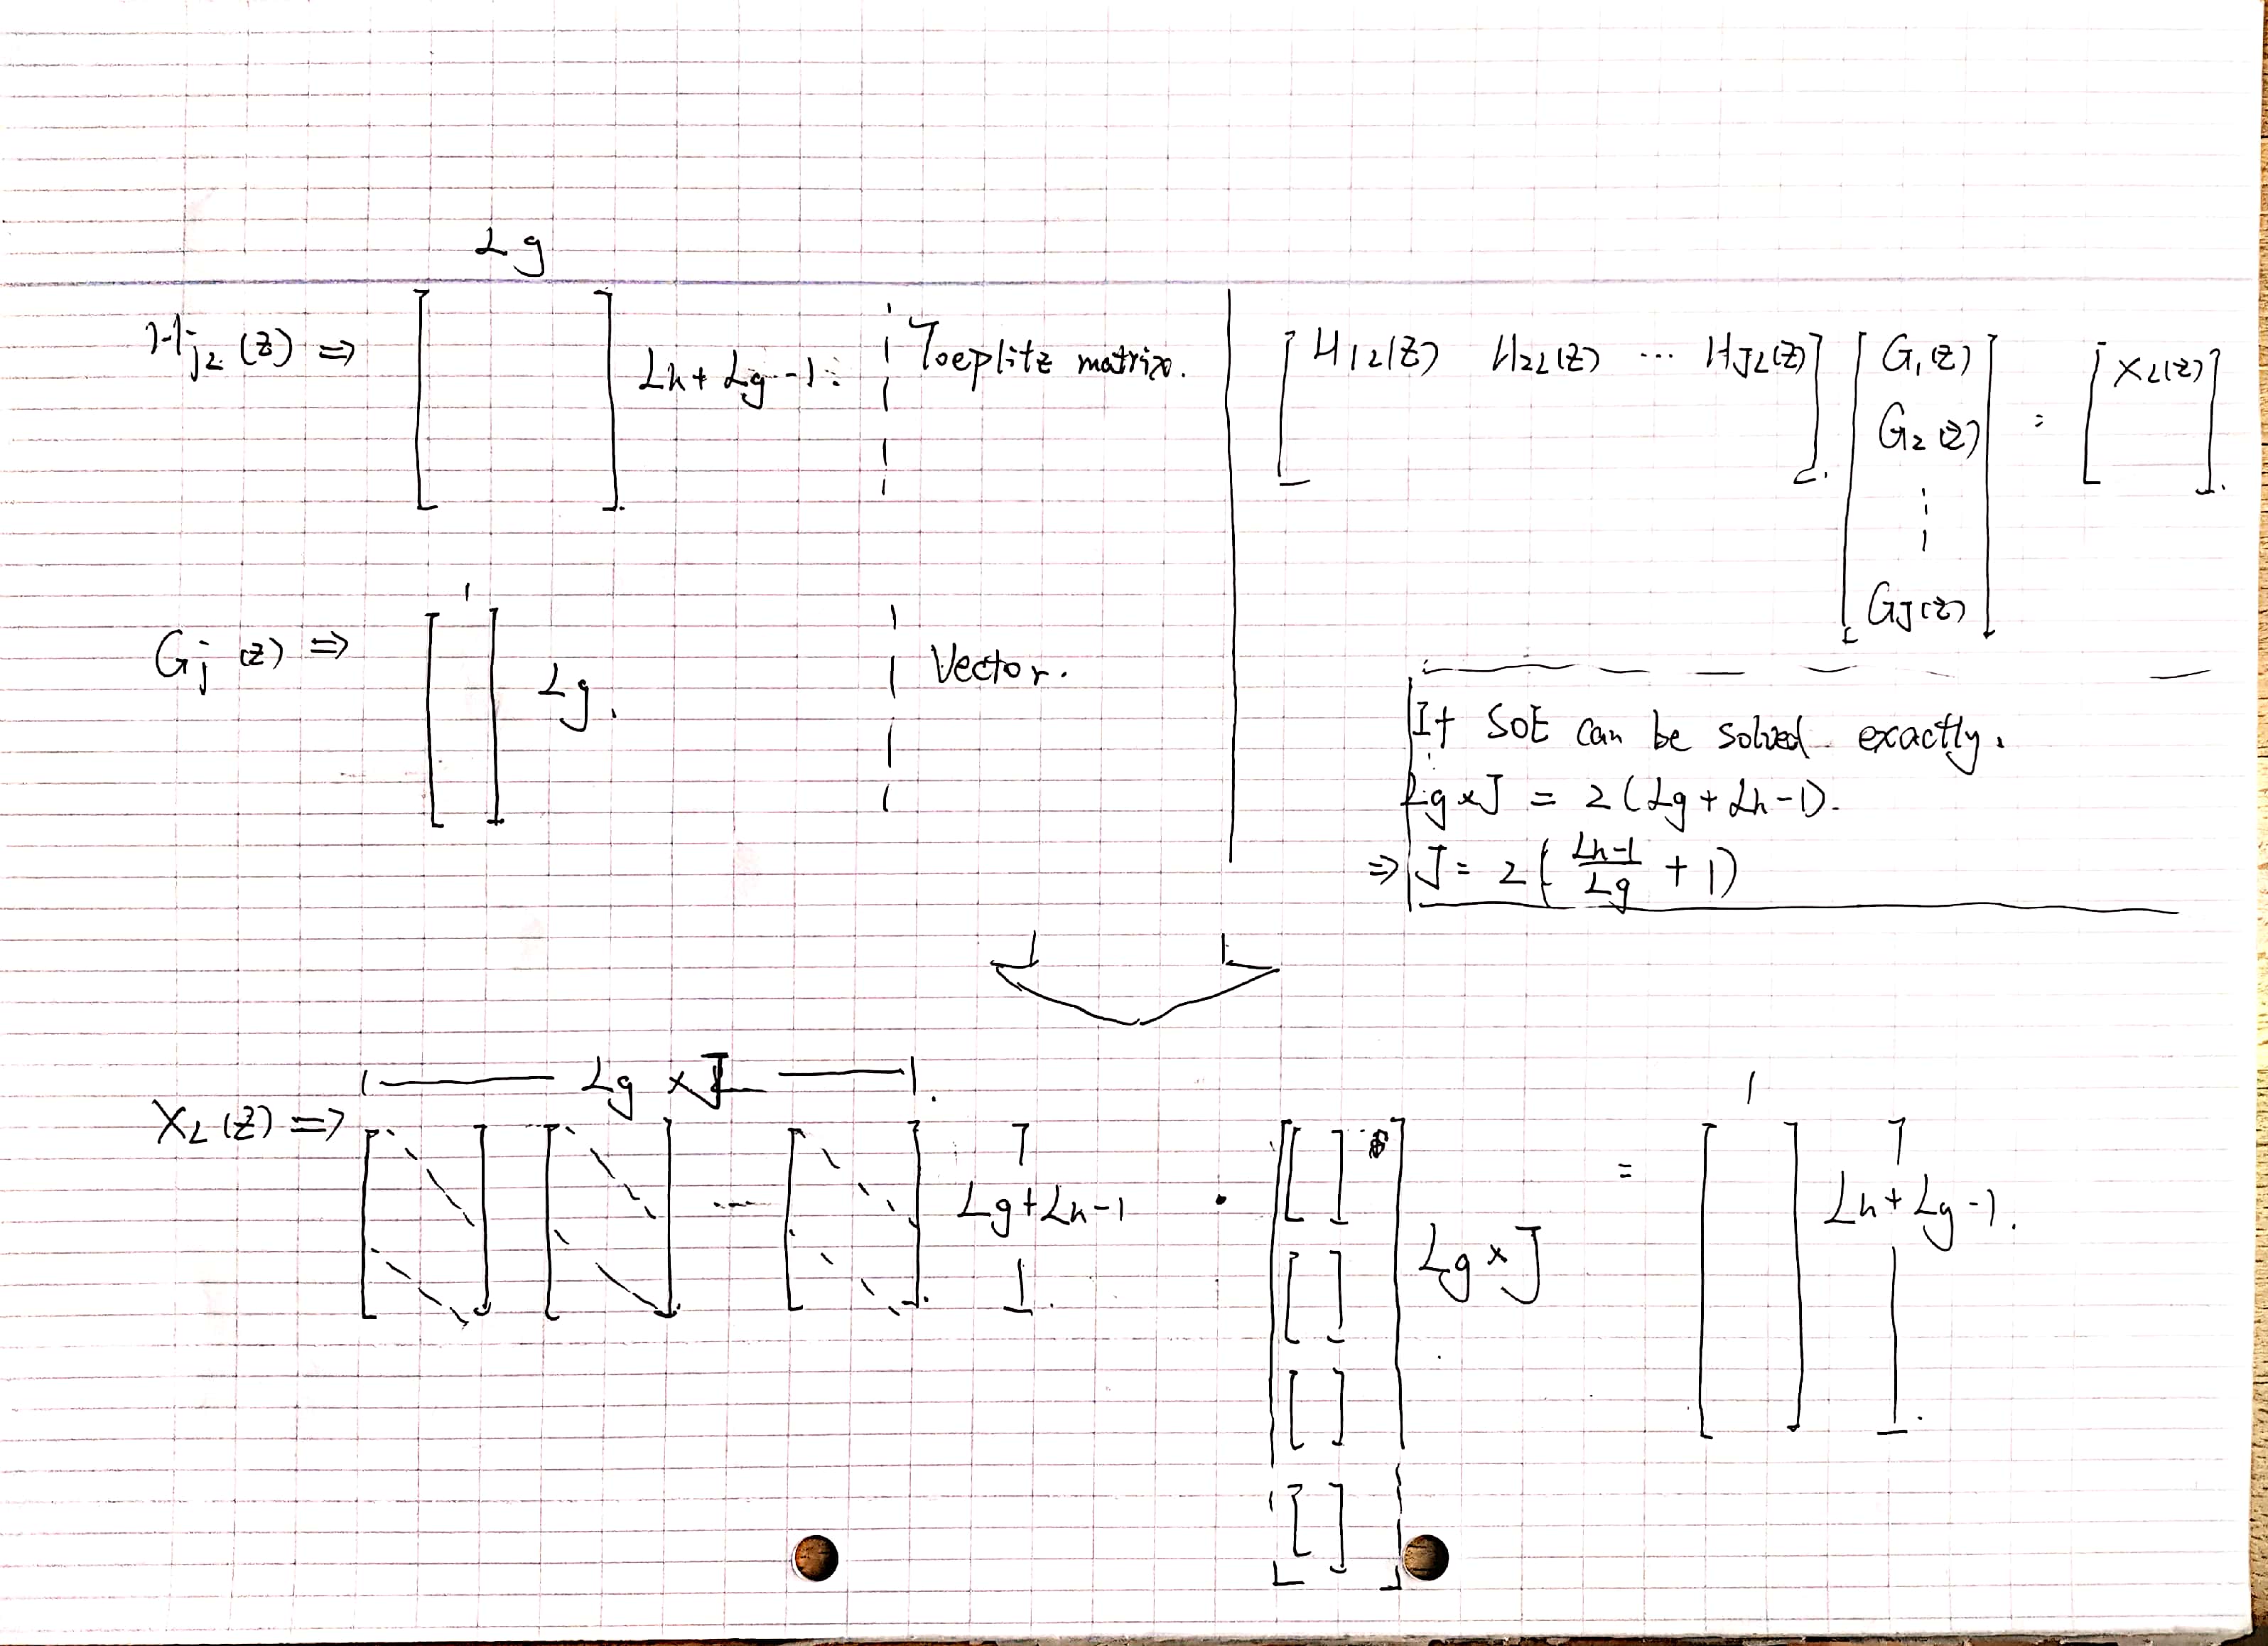 Lg
HjL(z) ⇒ [ ] Lh + Lg -1 : Toeplitz matrix.
Gj(z) ⇒ [ ] 1 Lg. Vector.
[ H1L(z) H2L(z) ... HJL(z) ] . [ G1(z) G2(z) ⋮ GJ(z) ] = [ XL(z) ].
If SOE can be solved exactly.
Lg × J = 2(Lg + Lh -1).
⇒ J = 2( (Lh-1)/Lg + 1 )
Lg × J
XL(z) ⇒ [ ] [ ] ... [ ] Lg+Lh-1 · [ [ ] [ ] [ ] [ ] ] Lg × J = [ ] 1 Lh + Lg -1.